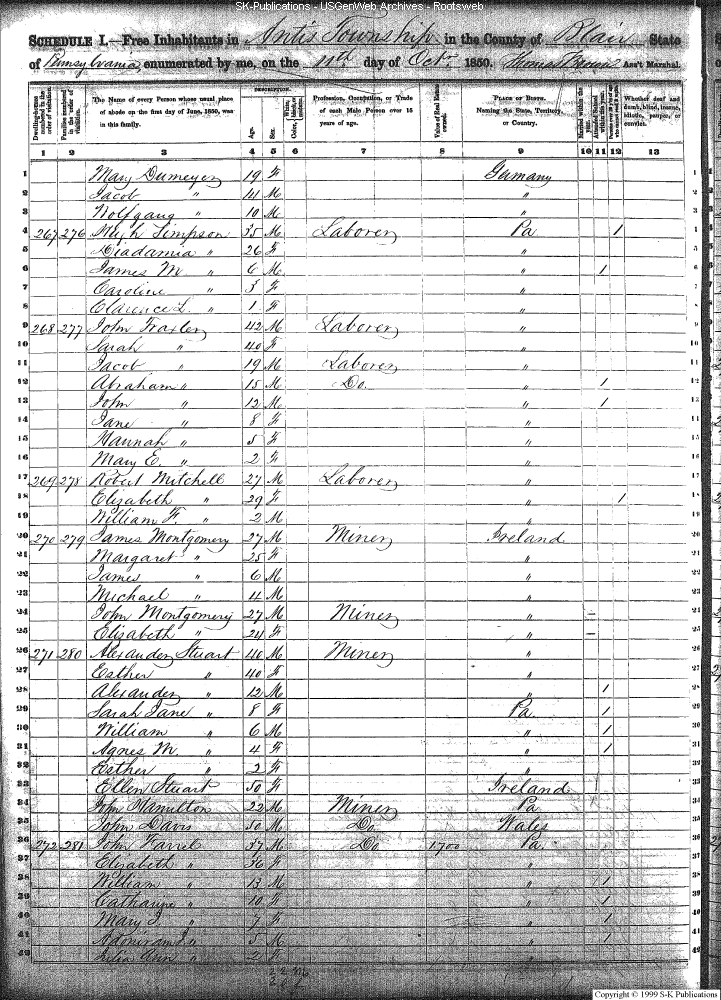 SK-Publications - USGenWeb Archives - Rootsweb
SCHEDULE I.—Free Inhabitants in Antis Township in the County of Blair State
of Pennsylvania, enumerated by me, on the 11th day of Octr. 1850. Thomas Ass't Marshal.
Dwelling-houses numbered in the order of visitation. Families numbered in the order of visitation. The Name of every Person whose usual place of abode on the first day of June, 1850, was in this family. DESCRIPTION. Age. Sex. Profession, Occupation, or Trade of each Male Person over 15 years of age. Value of Real Estate owned. PLACE OF BIRTH. Naming the State, Territory, or Country. Married within the year. Attended School within the year. Whether deaf and dumb, blind, insane, idiotic, pauper, or convict.
1 2 3 4 5 6 7 8 9 10 11 12 13
1 Mary Dumeyer 19 F Germany 1
2 Jacob " 14 M " 2
3 Wolfgang " 10 M " 3
4 267 276 Hugh Simpson 35 M Laborer Pa 1 4
5 Diadamia " 26 F " 5
6 James M " 6 M " 1 6
7 Caroline " 3 F " 7
8 Clarence L. " 1 F " 8
9 268 277 John Traxler 42 M Laborer " 9
10 Sarah " 40 F " 10
11 Jacob " 19 M Laborer " 11
12 Abraham " 15 M Do. " 1 12
13 John " 12 M " 1 13
14 Jane " 8 F " 14
15 Hannah " 5 F " 15
16 Mary E. " 2 F " 16
17 269 278 Robert Mitchell 27 M Laborer " 17
18 Elizabeth " 29 F " 1 18
19 William F. " 2 M " 19
20 270 279 James Montgomery 27 M Miner Ireland 20
21 Margaret " 25 F " 21
22 James " 6 M " 22
23 Michael " 4 M " 23
24 John Montgomery 27 M Miner " 24
25 Elizabeth " 24 F " 25
26 271 280 Alexander Stuart 40 M Miner " 26
27 Esther " 40 F " 27
28 Alexander " 12 M " 1 28
29 Sarah Jane " 8 F Pa. 1 29
30 William " 6 M " 1 30
31 Agnes M " 4 F " 1 31
32 Esther " 2 F " 32
33 Ellen Stuart 50 F Ireland 33
34 John Hamilton 22 M Miner Pa 34
35 John Davis 50 M Do Wales 35
36 272 281 John Farrel 37 M Do 1700 Pa. 36
37 Elizabeth " 36 F " 37
38 William " 13 M " 1 38
39 Catharine " 10 F " 1 39
40 Mary J. " 7 F " 1 40
41 Adoniram J. " 5 M " 1 41
42 Ann " 2 F " 42
Copyright © 1999 S-K Publications